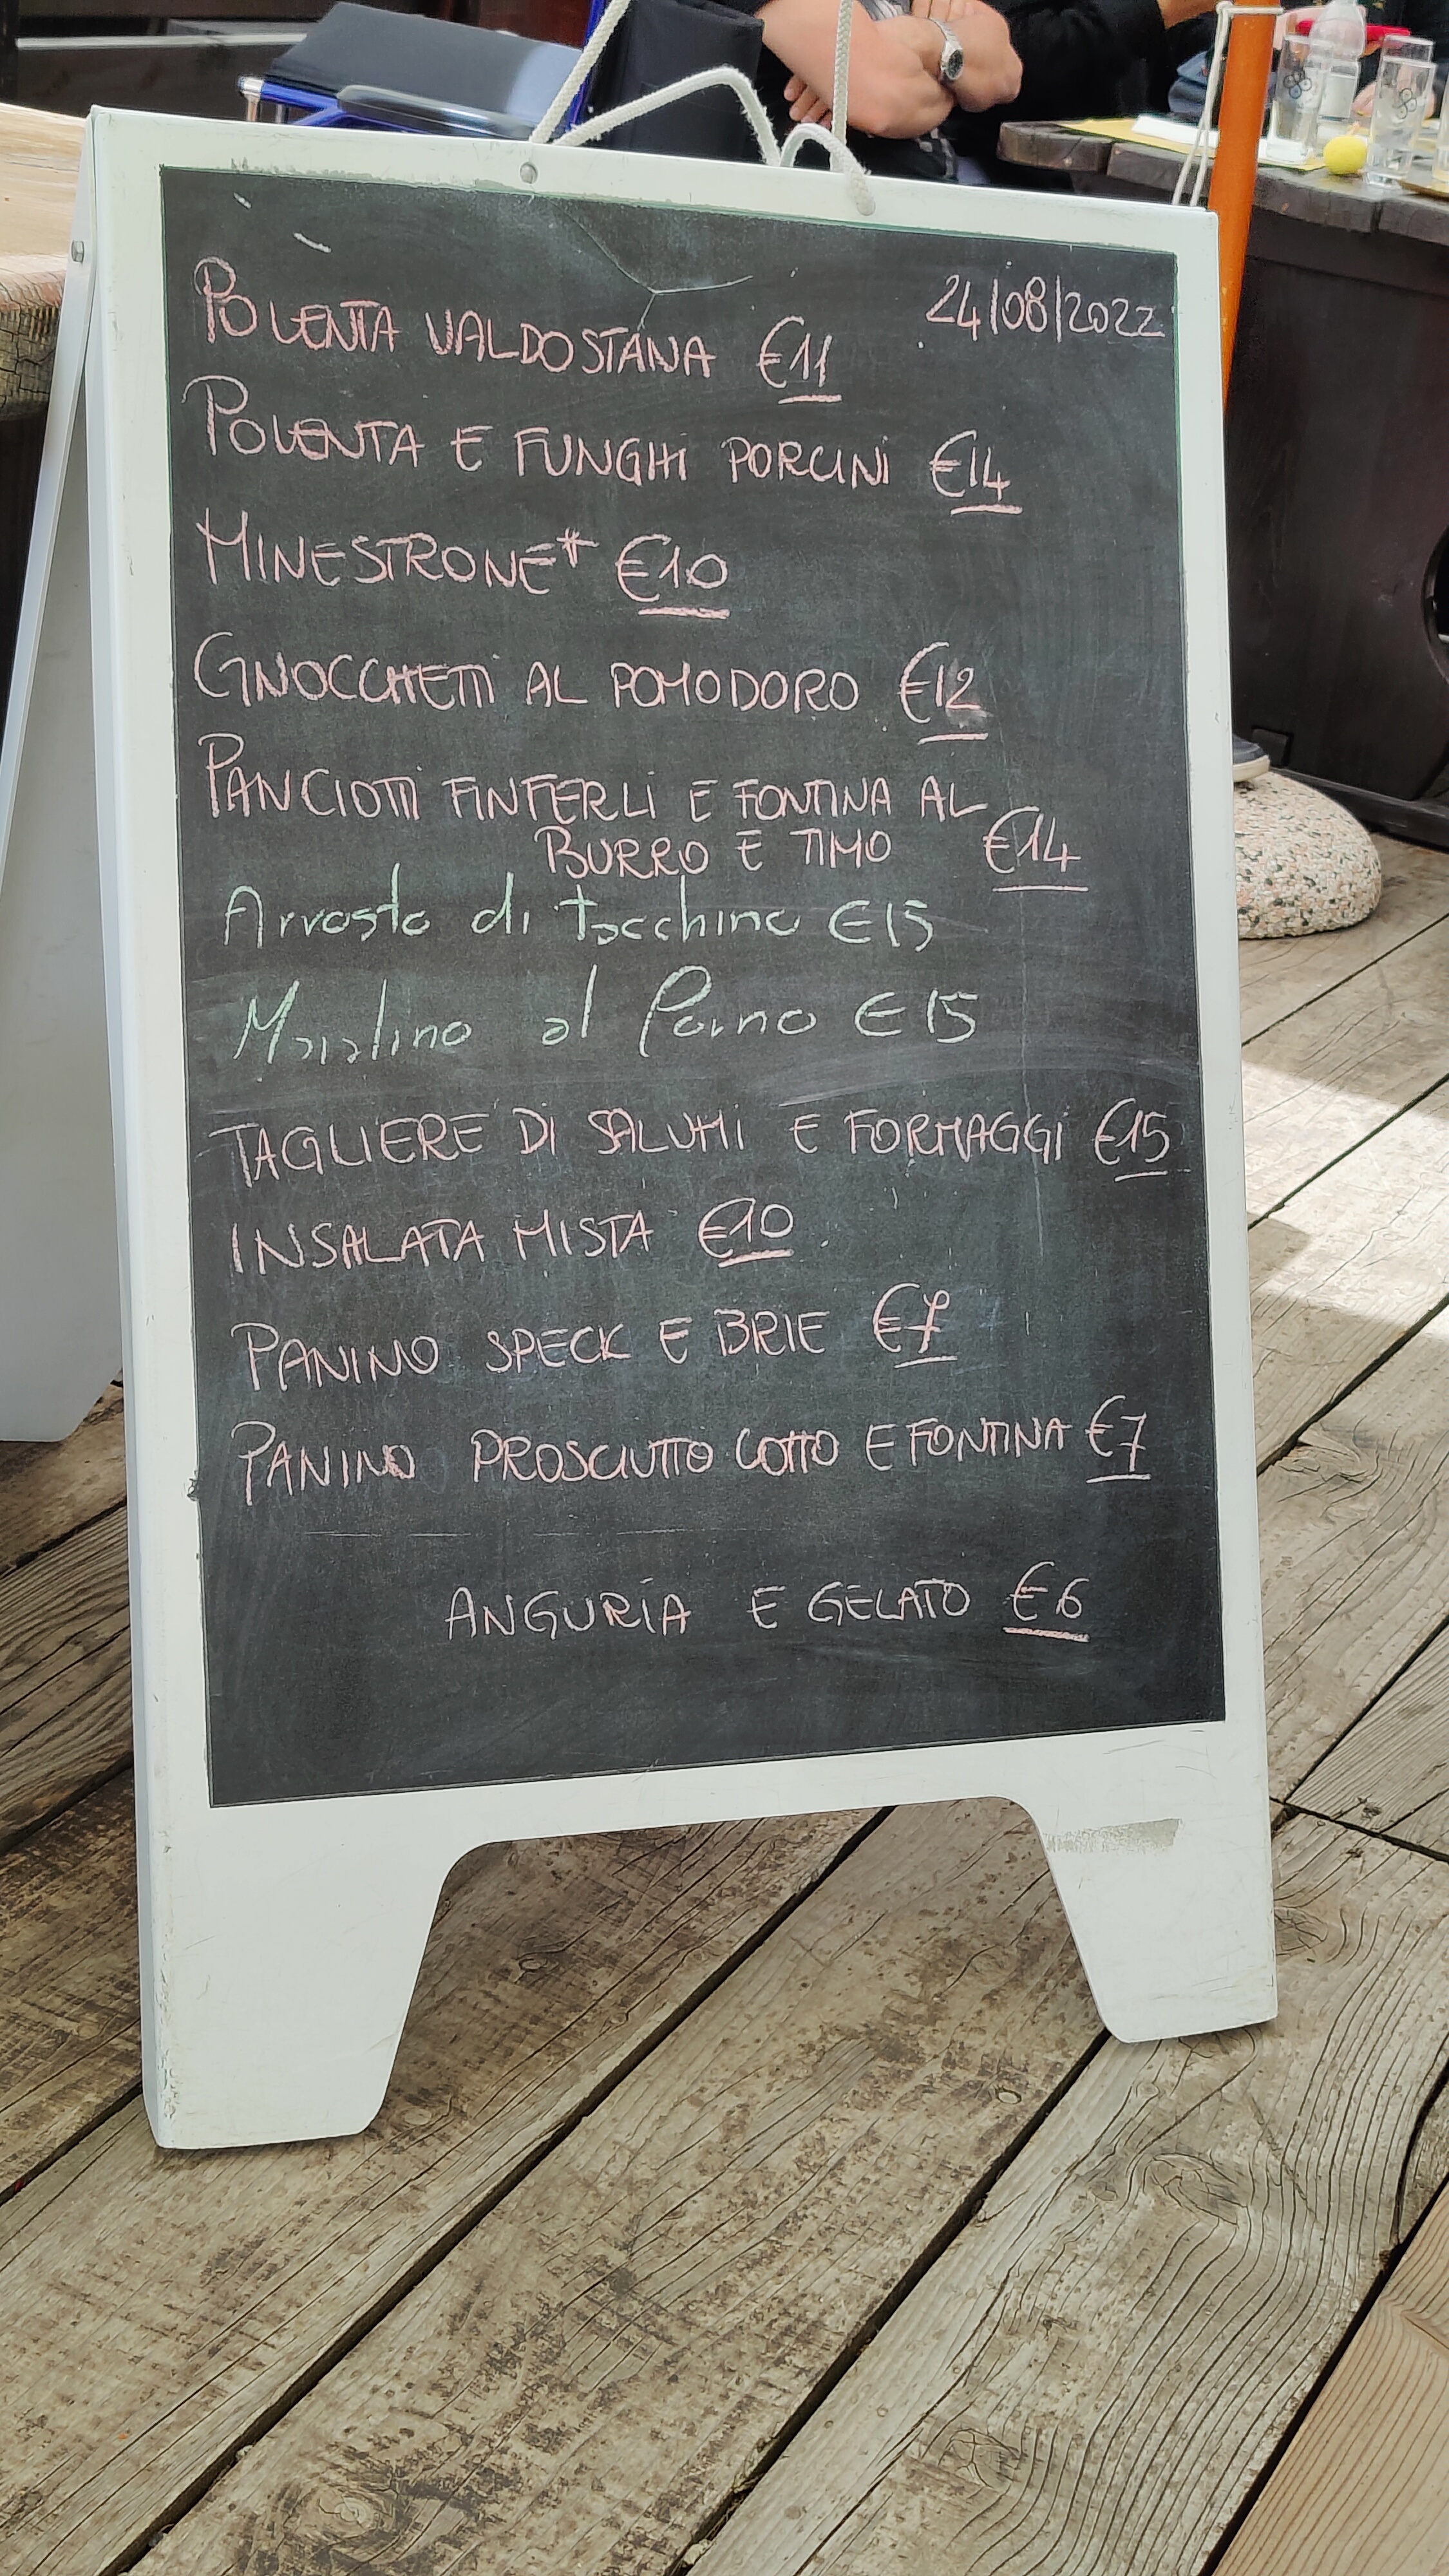 24/08/2022
POLENTA VALDOSTANA €11
POLENTA E FUNGHI PORCINI €14
MINESTRONE* €10
GNOCCHETTI AL POMODORO €12
PANCIOTTI FINFERLI E FONTINA AL
BURRO E TIMO €14
Arrosto di tacchino €15
Maialino al forno €15
TAGLIERE DI SALUMI E FORMAGGI €15
INSALATA MISTA €10
PANINO SPECK E BRIE €7
PANINO PROSCIUTTO COTTO E FONTINA €7
ANGURIA E GELATO €6